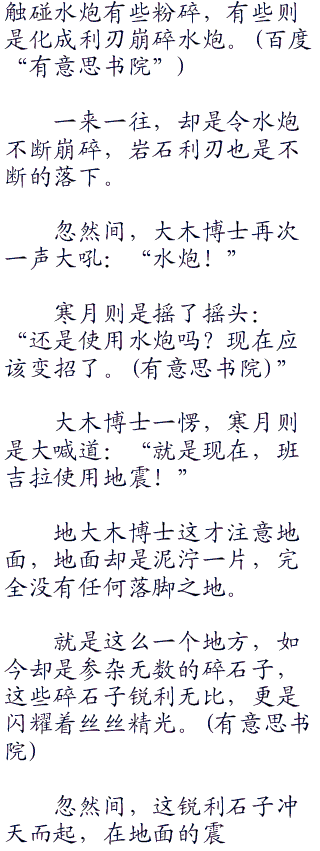 触碰水炮有些粉碎，有些则
是化成利刃崩碎水炮。(百度
“有意思书院”)
一来一往，却是令水炮
不断崩碎，岩石利刃也是不
断的落下。
忽然间，大木博士再次
一声大吼：“水炮！”
寒月则是摇了摇头：
“还是使用水炮吗？现在应
该变招了。(有意思书院)”
大木博士一愣，寒月则
是大喊道：“就是现在，班
吉拉使用地震！”
地大木博士这才注意地
面，地面却是泥泞一片，完
全没有任何落脚之地。
就是这么一个地方，如
今却是参杂无数的碎石子，
这些碎石子锐利无比，更是
闪耀着丝丝精光。(有意思书
院)
忽然间，这锐利石子冲
天而起，在地面的震